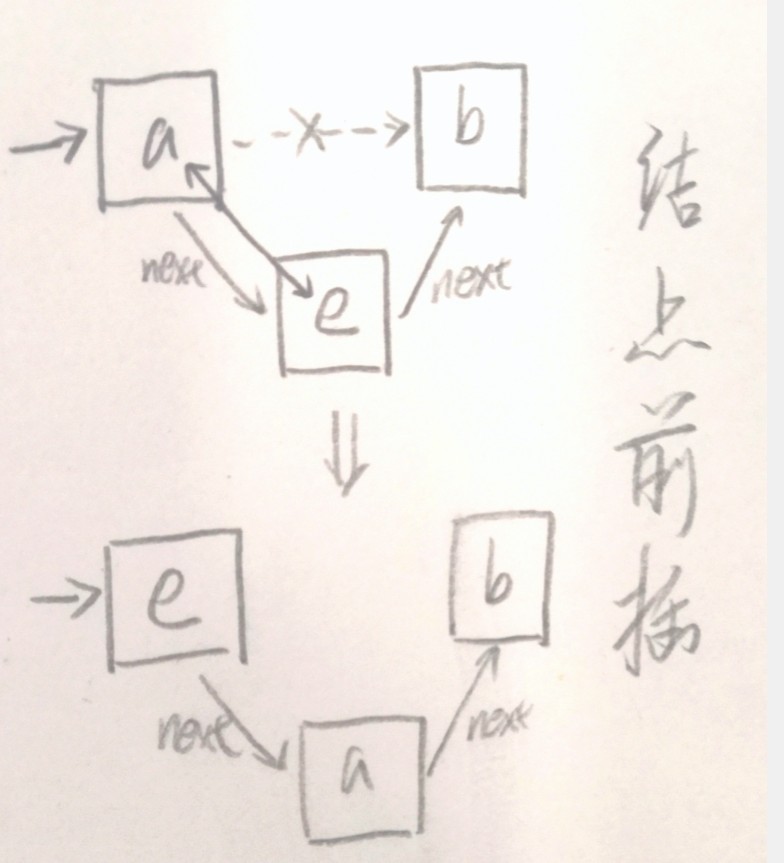 a
b
next
e
next
e
b
next
a
next
结点前插